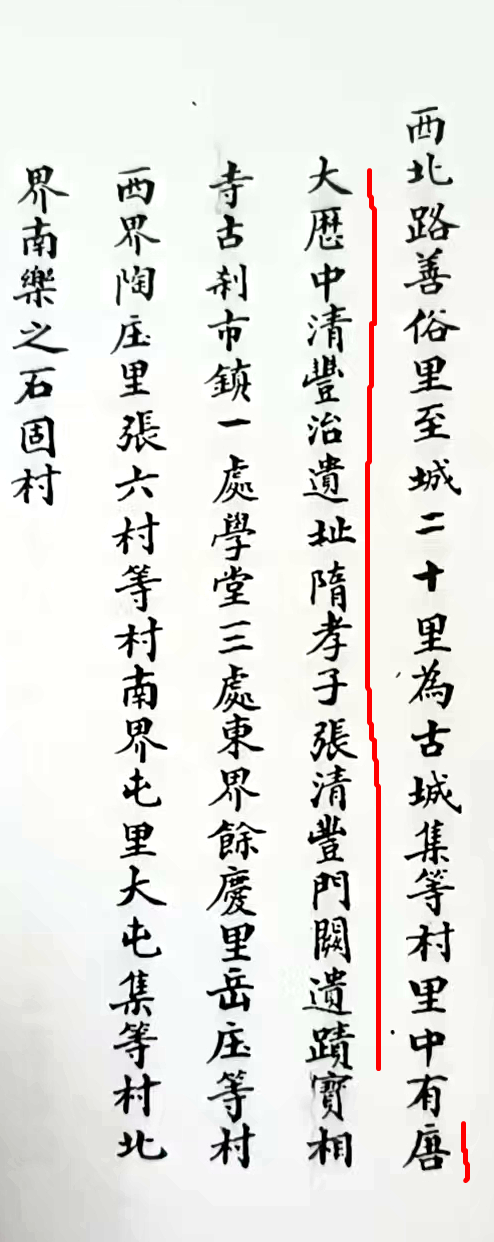 西北路善俗里至城二十里為古城集等村里中有唐
大歷中清豐治遺址隋孝子張清豐門闕遺蹟寳相
寺古刹市鎮一處學堂三處東界餘慶里岳庄等村
西界陶庄里張六村等村南界屯里大屯集等村北
界南樂之石固村